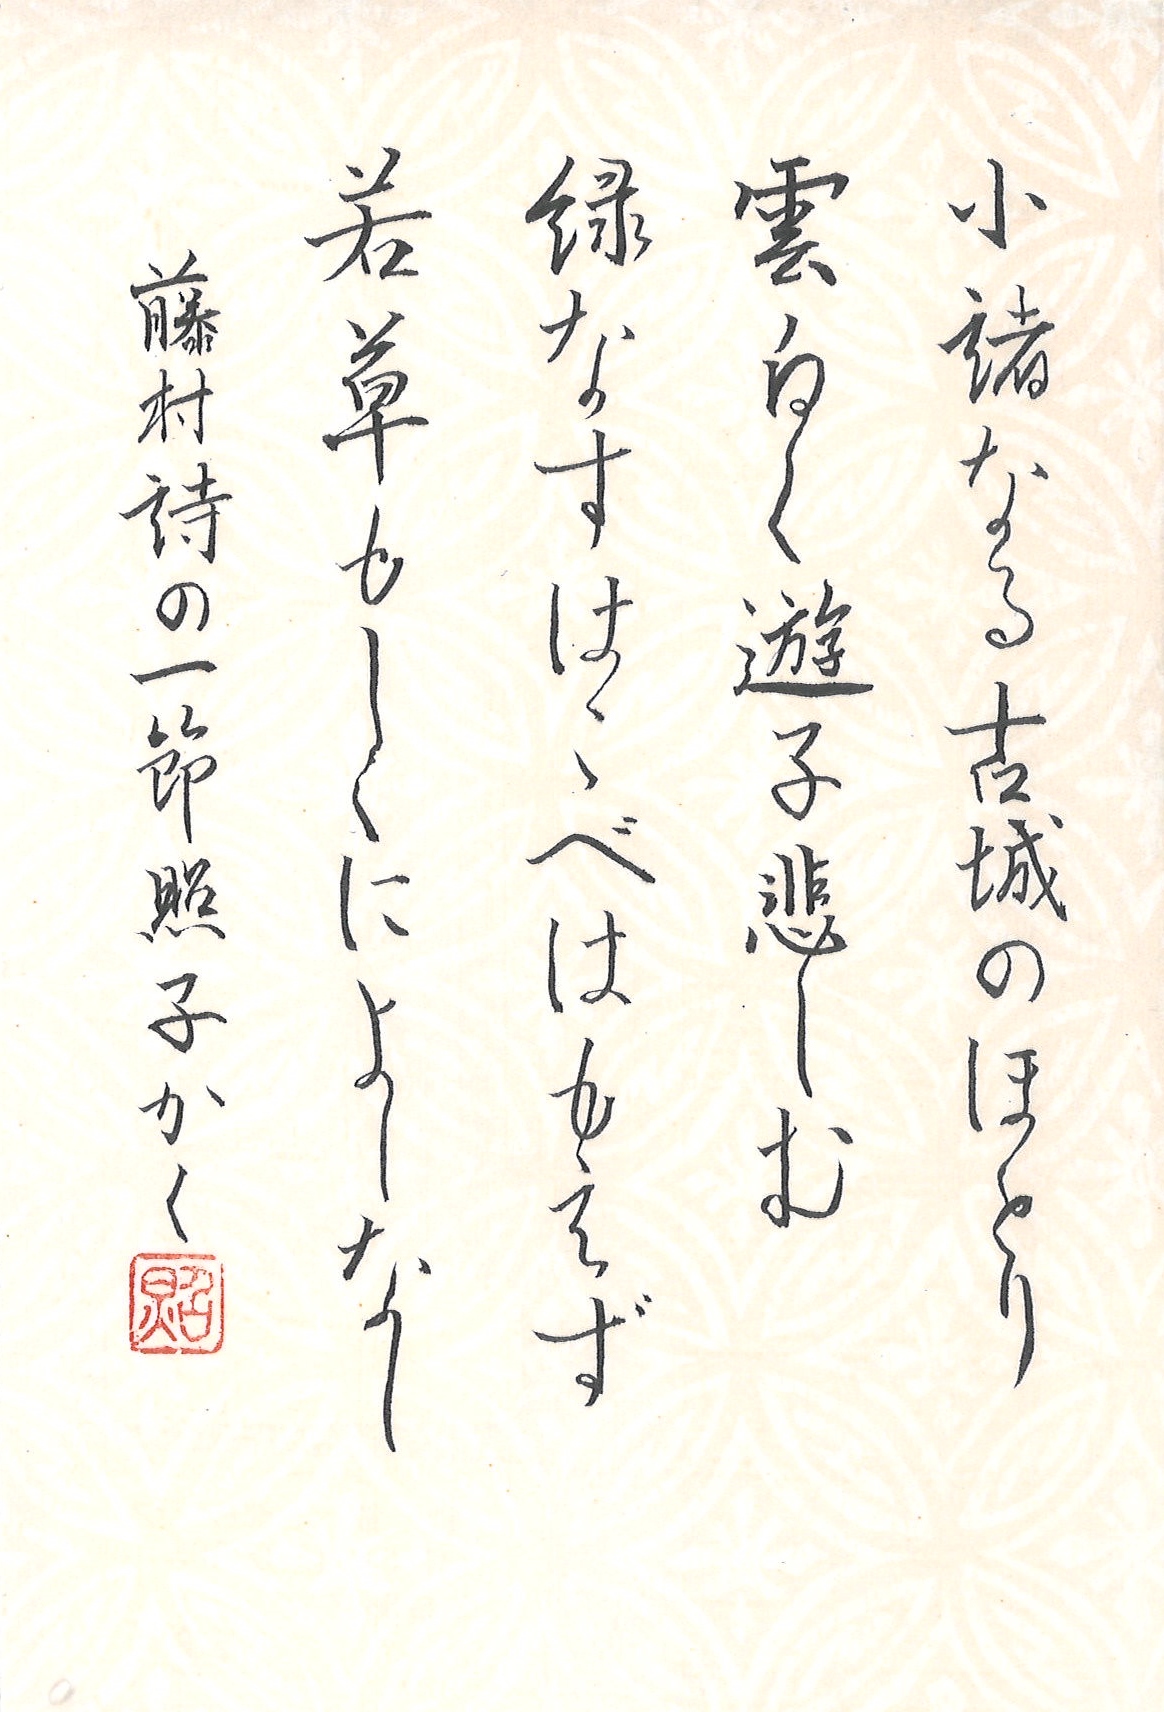 小諸なる古城のほとり
雲白く遊子悲しむ
緑なすはゝべはもえず
若草もしくによしなし
藤村詩の一節照子かく
照